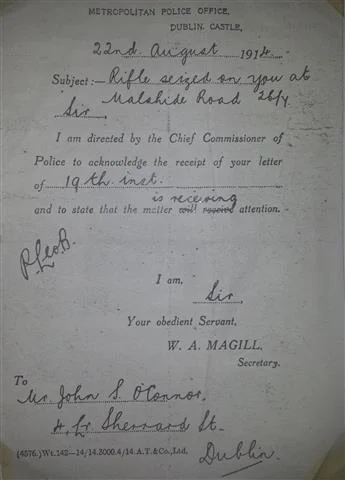 METROPOLITAN POLICE OFFICE,
DUBLIN CASTLE,
22nd August 1914.
Subject:— Rifle seized on you at
Malahide Road 26/7
Sir,
I am directed by the Chief Commissioner of
Police to acknowledge the receipt of your letter
of 19th inst.
is receiving
and to state that the matter will receive attention.
I am,
Sir,
Your obedient Servant,
W. A. MAGILL,
Secretary.
To
Mr. John S. O'Connor.
4, Lr Sherrard St.
Dublin.
(4576.)Wt.142—14/14.3000.4/14.A.T.&Co.,Ltd.